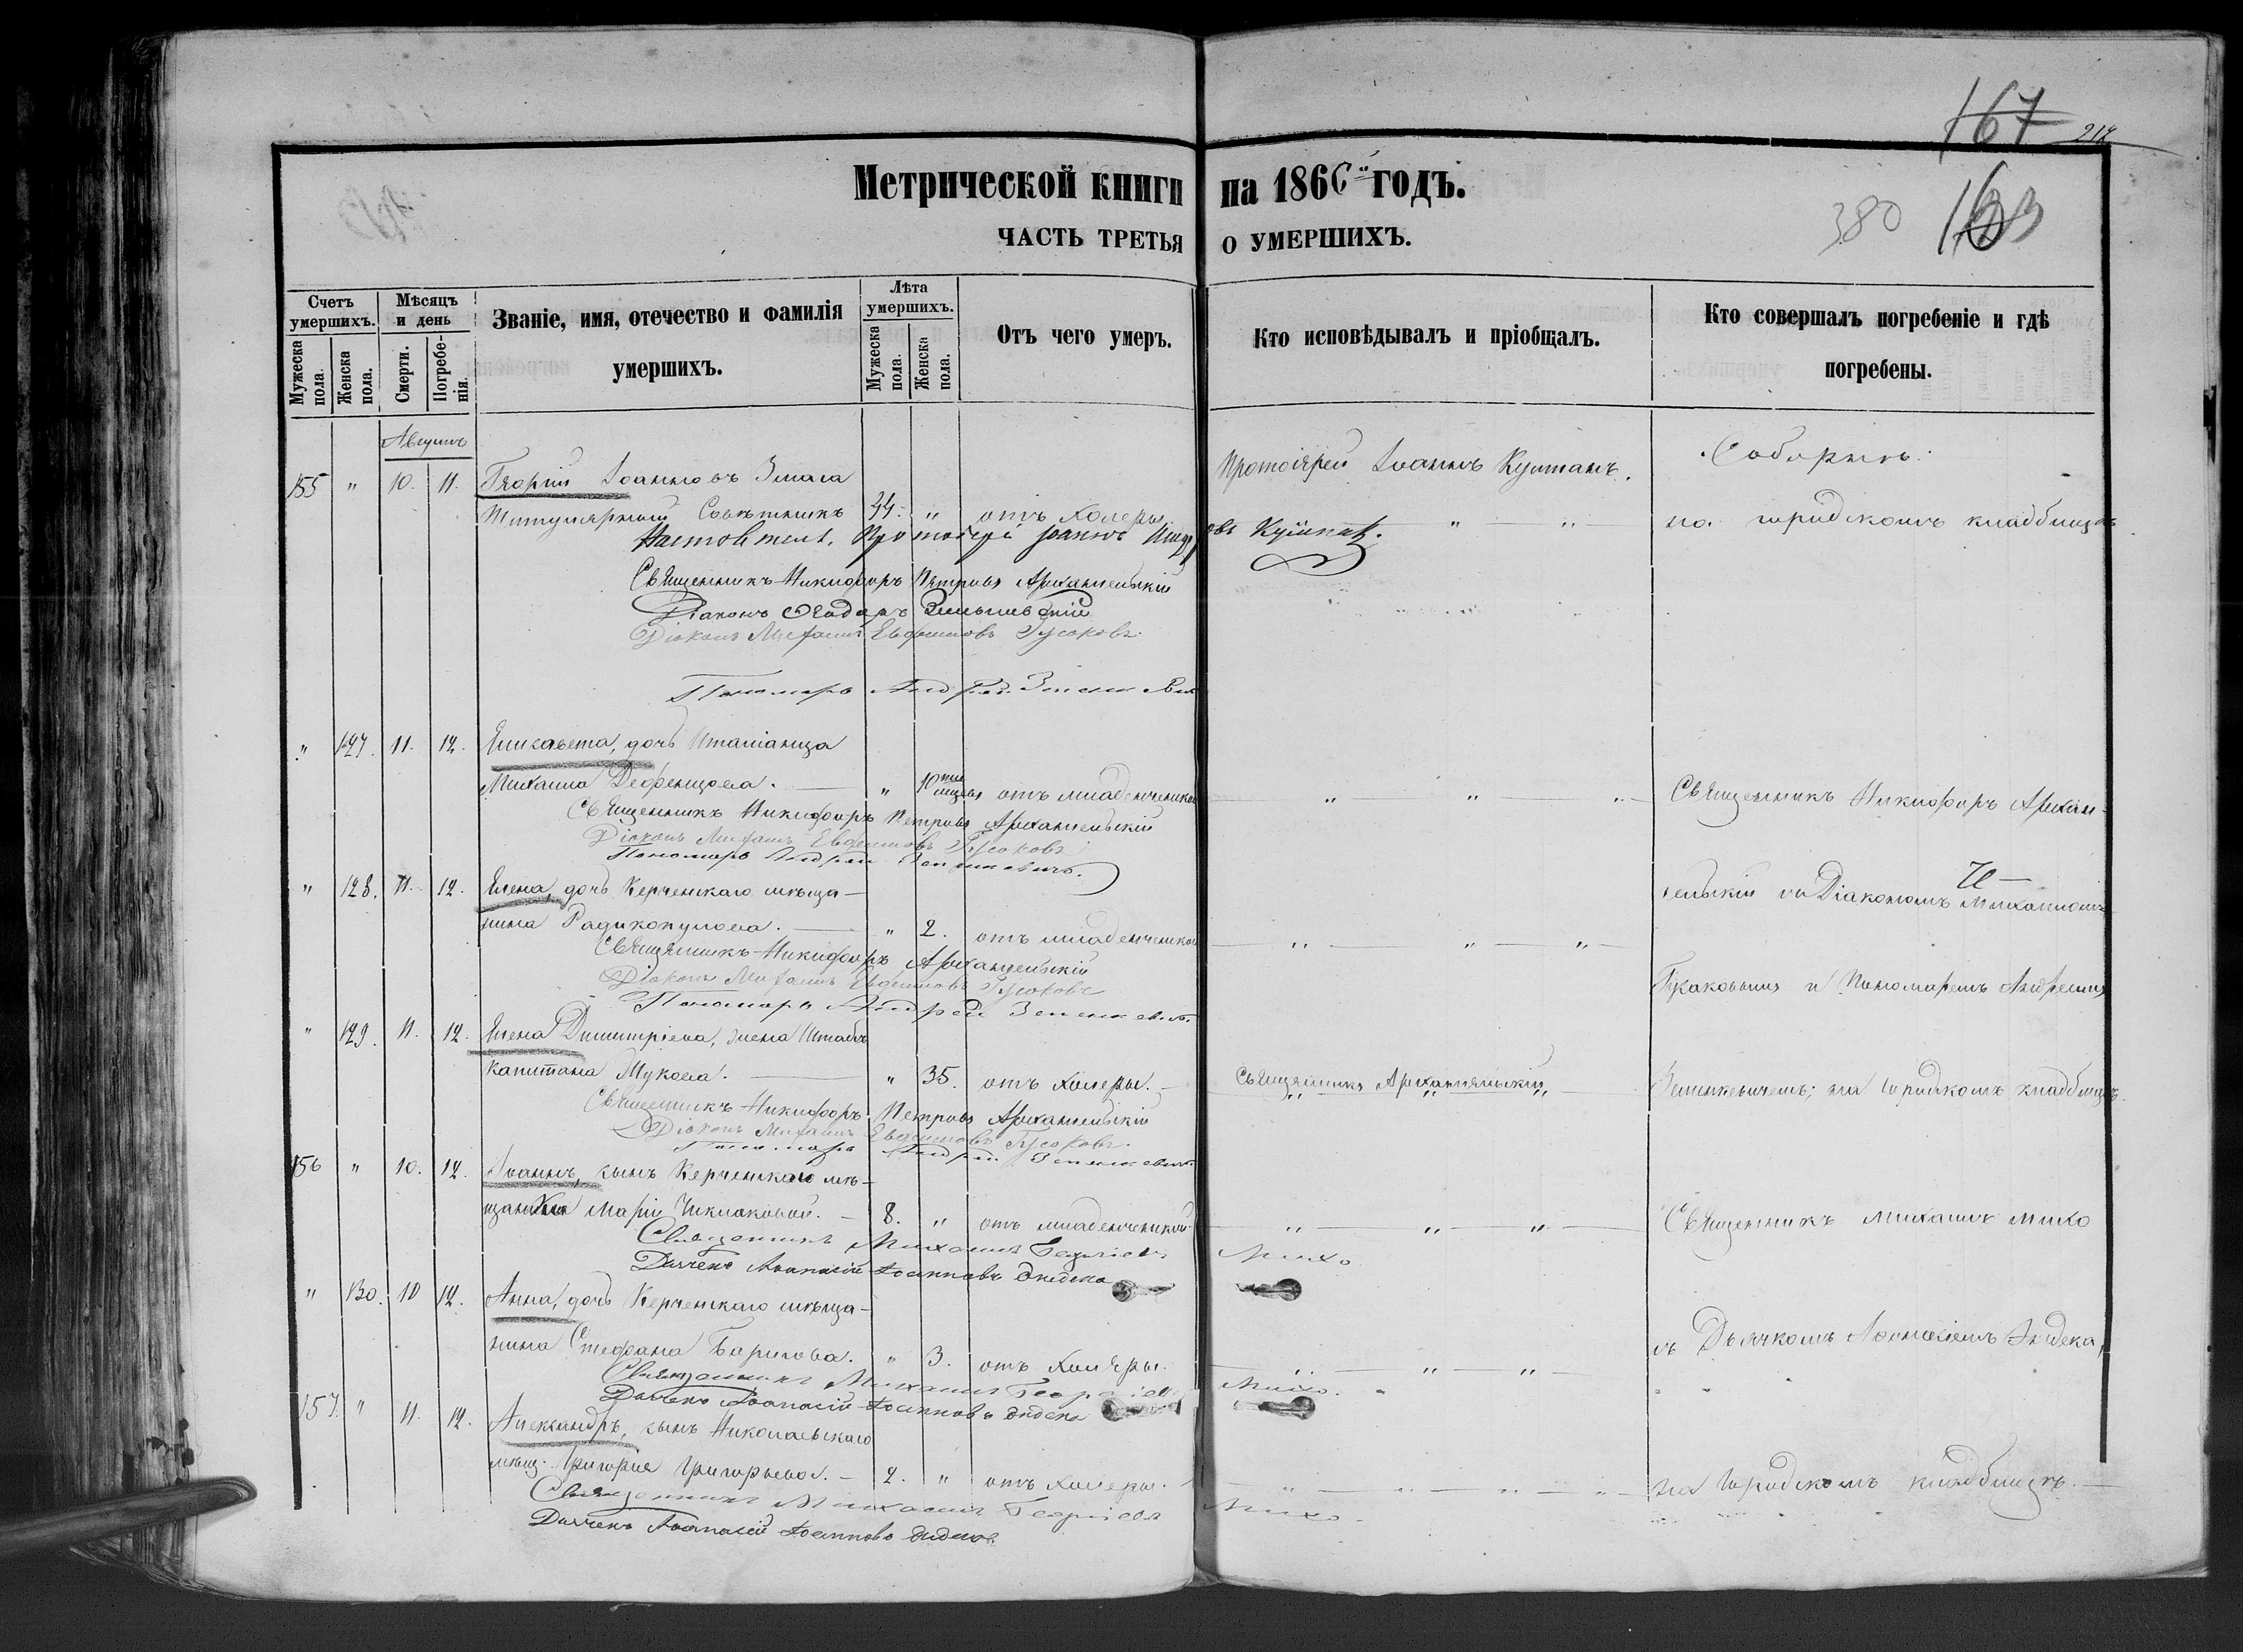 167 212
Метрической книги на 1866й годъ.
380 163
ЧАСТЬ ТРЕТЬЯ О УМЕРШИХЪ.
Счетъ умершихъ.
Мужеска пола.
Женска пола.
Мѣсяцъ и день
Смерти.
Погребенія.
Званіе, имя, отечество и фамилія умершихъ.
Лѣта умершихъ.
Мужеска пола.
Женска пола.
Отъ чего умеръ.
Кто исповѣдывалъ и пріобщалъ.
Кто совершалъ погребеніе и гдѣ погребены.
Августъ
155 " 10. 11. Георгій Іоанновъ
Протоіерей Іоаннъ
Соборнѣ.
Титулярный Совѣтникъ 44. " отъ холеры
на городскомъ кладбищѣ
Протоіерей Іоаннъ
Священникъ Никифоръ Петровъ Архангельскій
Діаконъ Ѳеодоръ
Діаконъ Михаилъ Евфимовъ Гусаковъ.
Пономарь Андрей Зенькевичъ
" 127. 11. 12. Елисавета, дочь Италіанца
Михаила " 10ти мѣсяц. отъ младенческой
Священникъ Никифоръ Архан-
Священникъ Никифоръ Петровъ Архангельскій
Діаконъ Михаилъ Евфимовъ Гусаковъ
Пономарь Андрей Зенькевичъ.
" 128. 11. 12. Елена, дочь Керченскаго мѣща-
гельскій съ Діакономъ Михаиломъ
нина " 2. отъ младенческой
Священникъ Никифоръ Архангельскій
Діаконъ Михаилъ Евфимовъ Гусаковъ
Гусаковымъ и Пономаремъ Андреемъ
Пономарь Андрей Зенькевичъ
" 129. 11. 12. Елена Димитріева, жена Штабсъ
капитана " 35. отъ холеры.
Священникъ Архангельскій
Зенькевичемъ; на городскомъ кладбищѣ.
Священникъ Никифоръ Петровъ Архангельскій
Діаконъ Михаилъ Евфимовъ Гусаковъ.
Пономарь Андрей Зенькевичъ
156 " 10. 12. Іоаннъ, сынъ Керченской мѣ-
щанки Маріи 8. " отъ младенческой
Священникъ Михаилъ Михо
Священникъ Михаилъ Георгіевъ Михо.
Дьячекъ Аѳанасій Іоанновъ
" 130. 10 12. Анна, дочь Керченскаго мѣща-
нина Стефана " 3. отъ холеры.
съ Дьячкомъ Аѳанасіемъ
Священникъ Михаилъ Георгіевъ Михо.
Дьячекъ Аѳанасій Іоанновъ
157. " 11. 12. Александръ, сынъ Николаевскаго
мѣщ. Григорія Григорьева. 2. " отъ холеры.
на городскомъ кладбищѣ.
Священникъ Михаилъ Георгіевъ Михо.
Дьячекъ Аѳанасій Іоанновъ